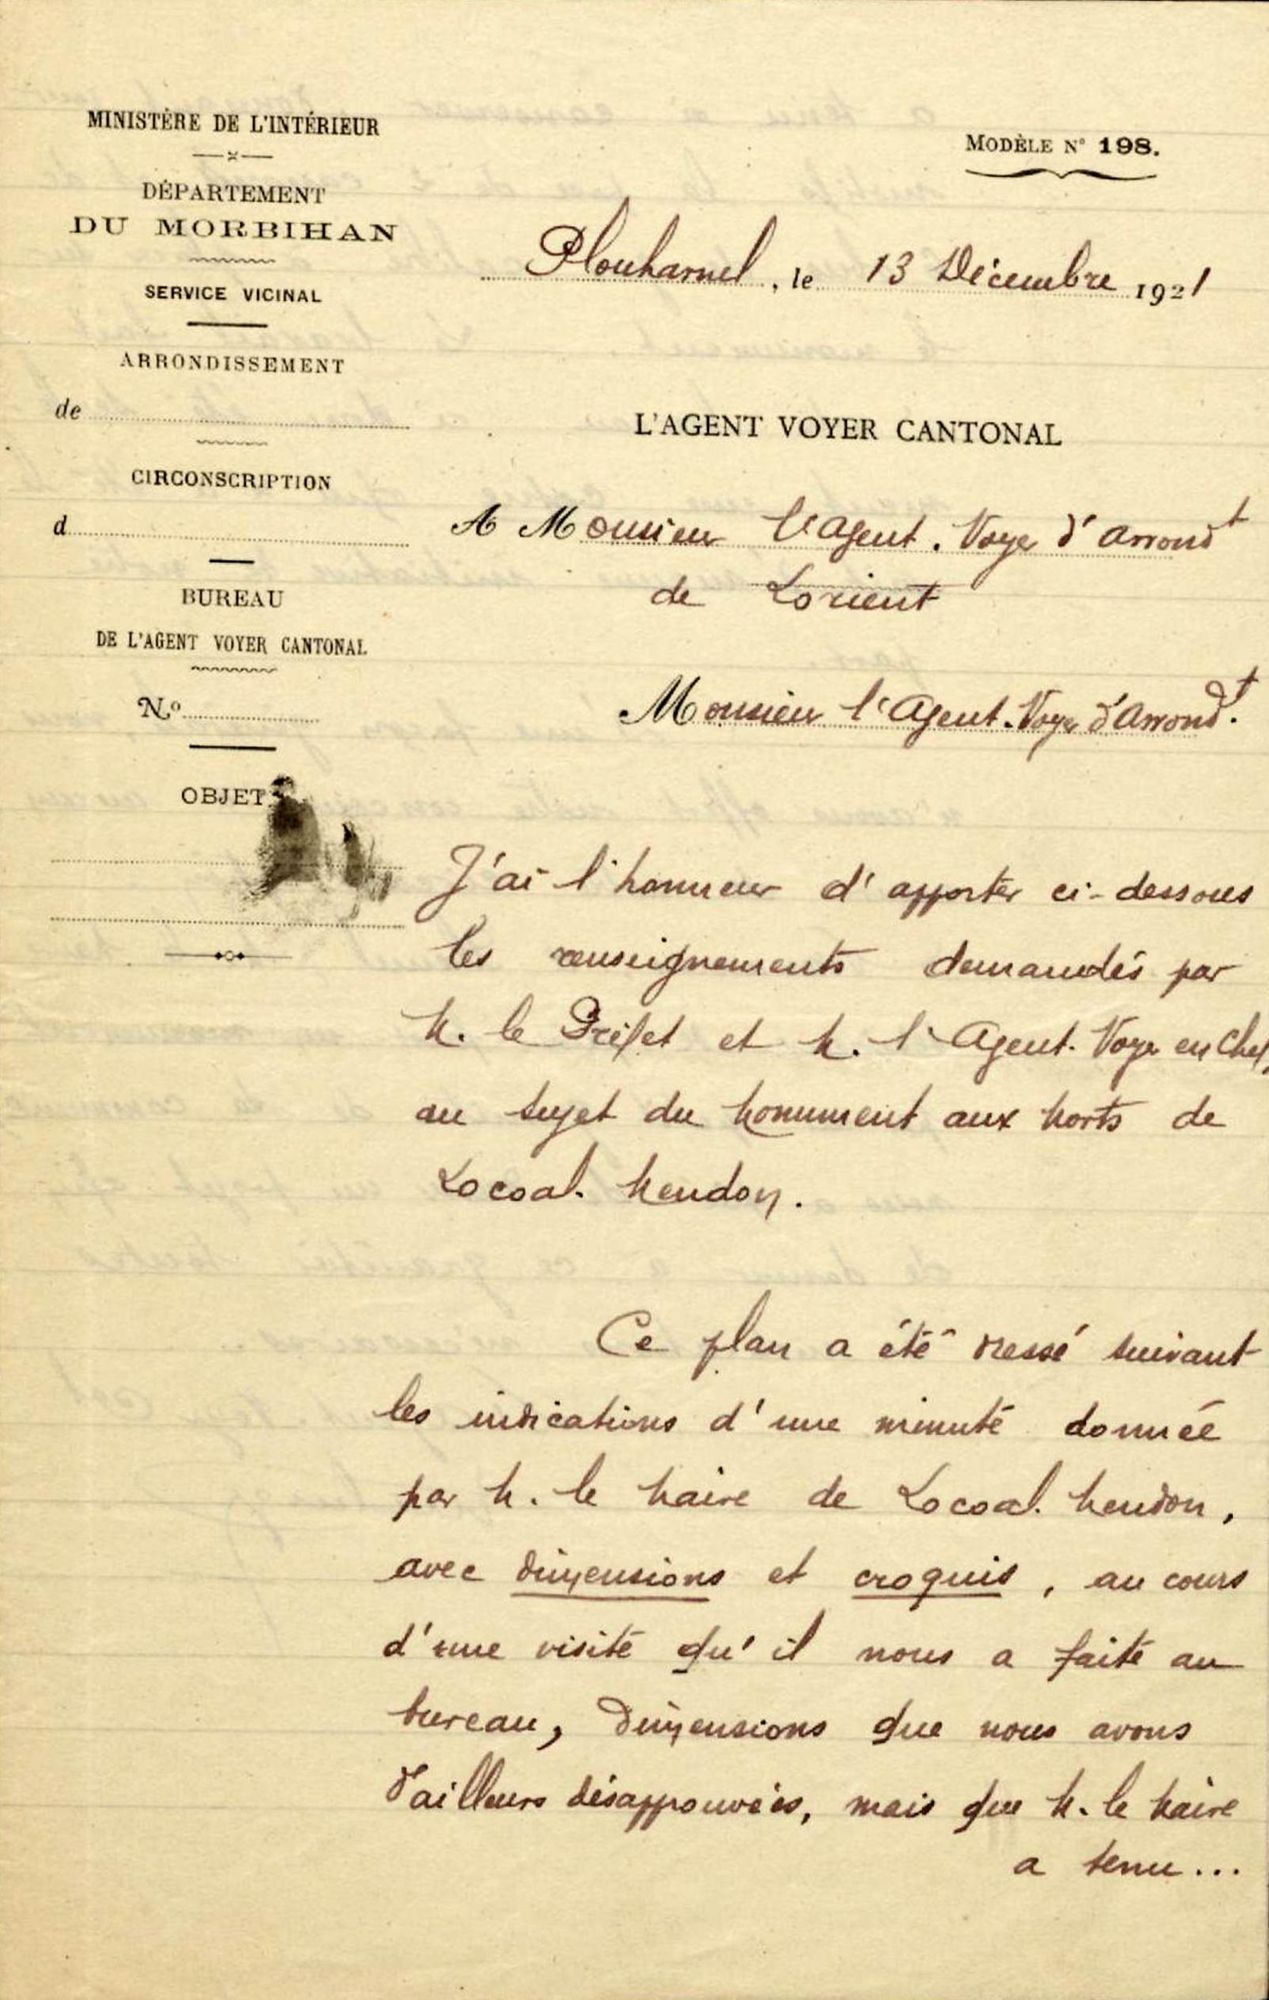 MINISTÈRE DE L'INTÉRIEUR
DÉPARTEMENT
DU MORBIHAN
SERVICE VICINAL
ARRONDISSEMENT
de
CIRCONSCRIPTION
d
BUREAU
DE L'AGENT VOYER CANTONAL
No
OBJET
MODÈLE N° 198.
Plouharnel, le 13 Décembre 1921
L'AGENT VOYER CANTONAL
A Monsieur l'Agent. Voyer d'Arrondt
de Lorient
Monsieur l'Agent-Voyer d'Arrondt.
J'ai l'honneur d'apporter ci-dessous
les renseignements demandés par
M. le Préfet et M. l'Agent-Voyer en Chef,
au sujet du Monument aux Morts de
Locoal-Mendon.
Ce plan a été dressé suivant
les indications d'une minute donnée
par M. le Maire de Locoal-Mendon,
avec dimensions et croquis, au cours
d'une visite qu'il nous a faite au
bureau, dimensions que nous avons
d'ailleurs désapprouvées, mais que M. le Maire
a tenu...